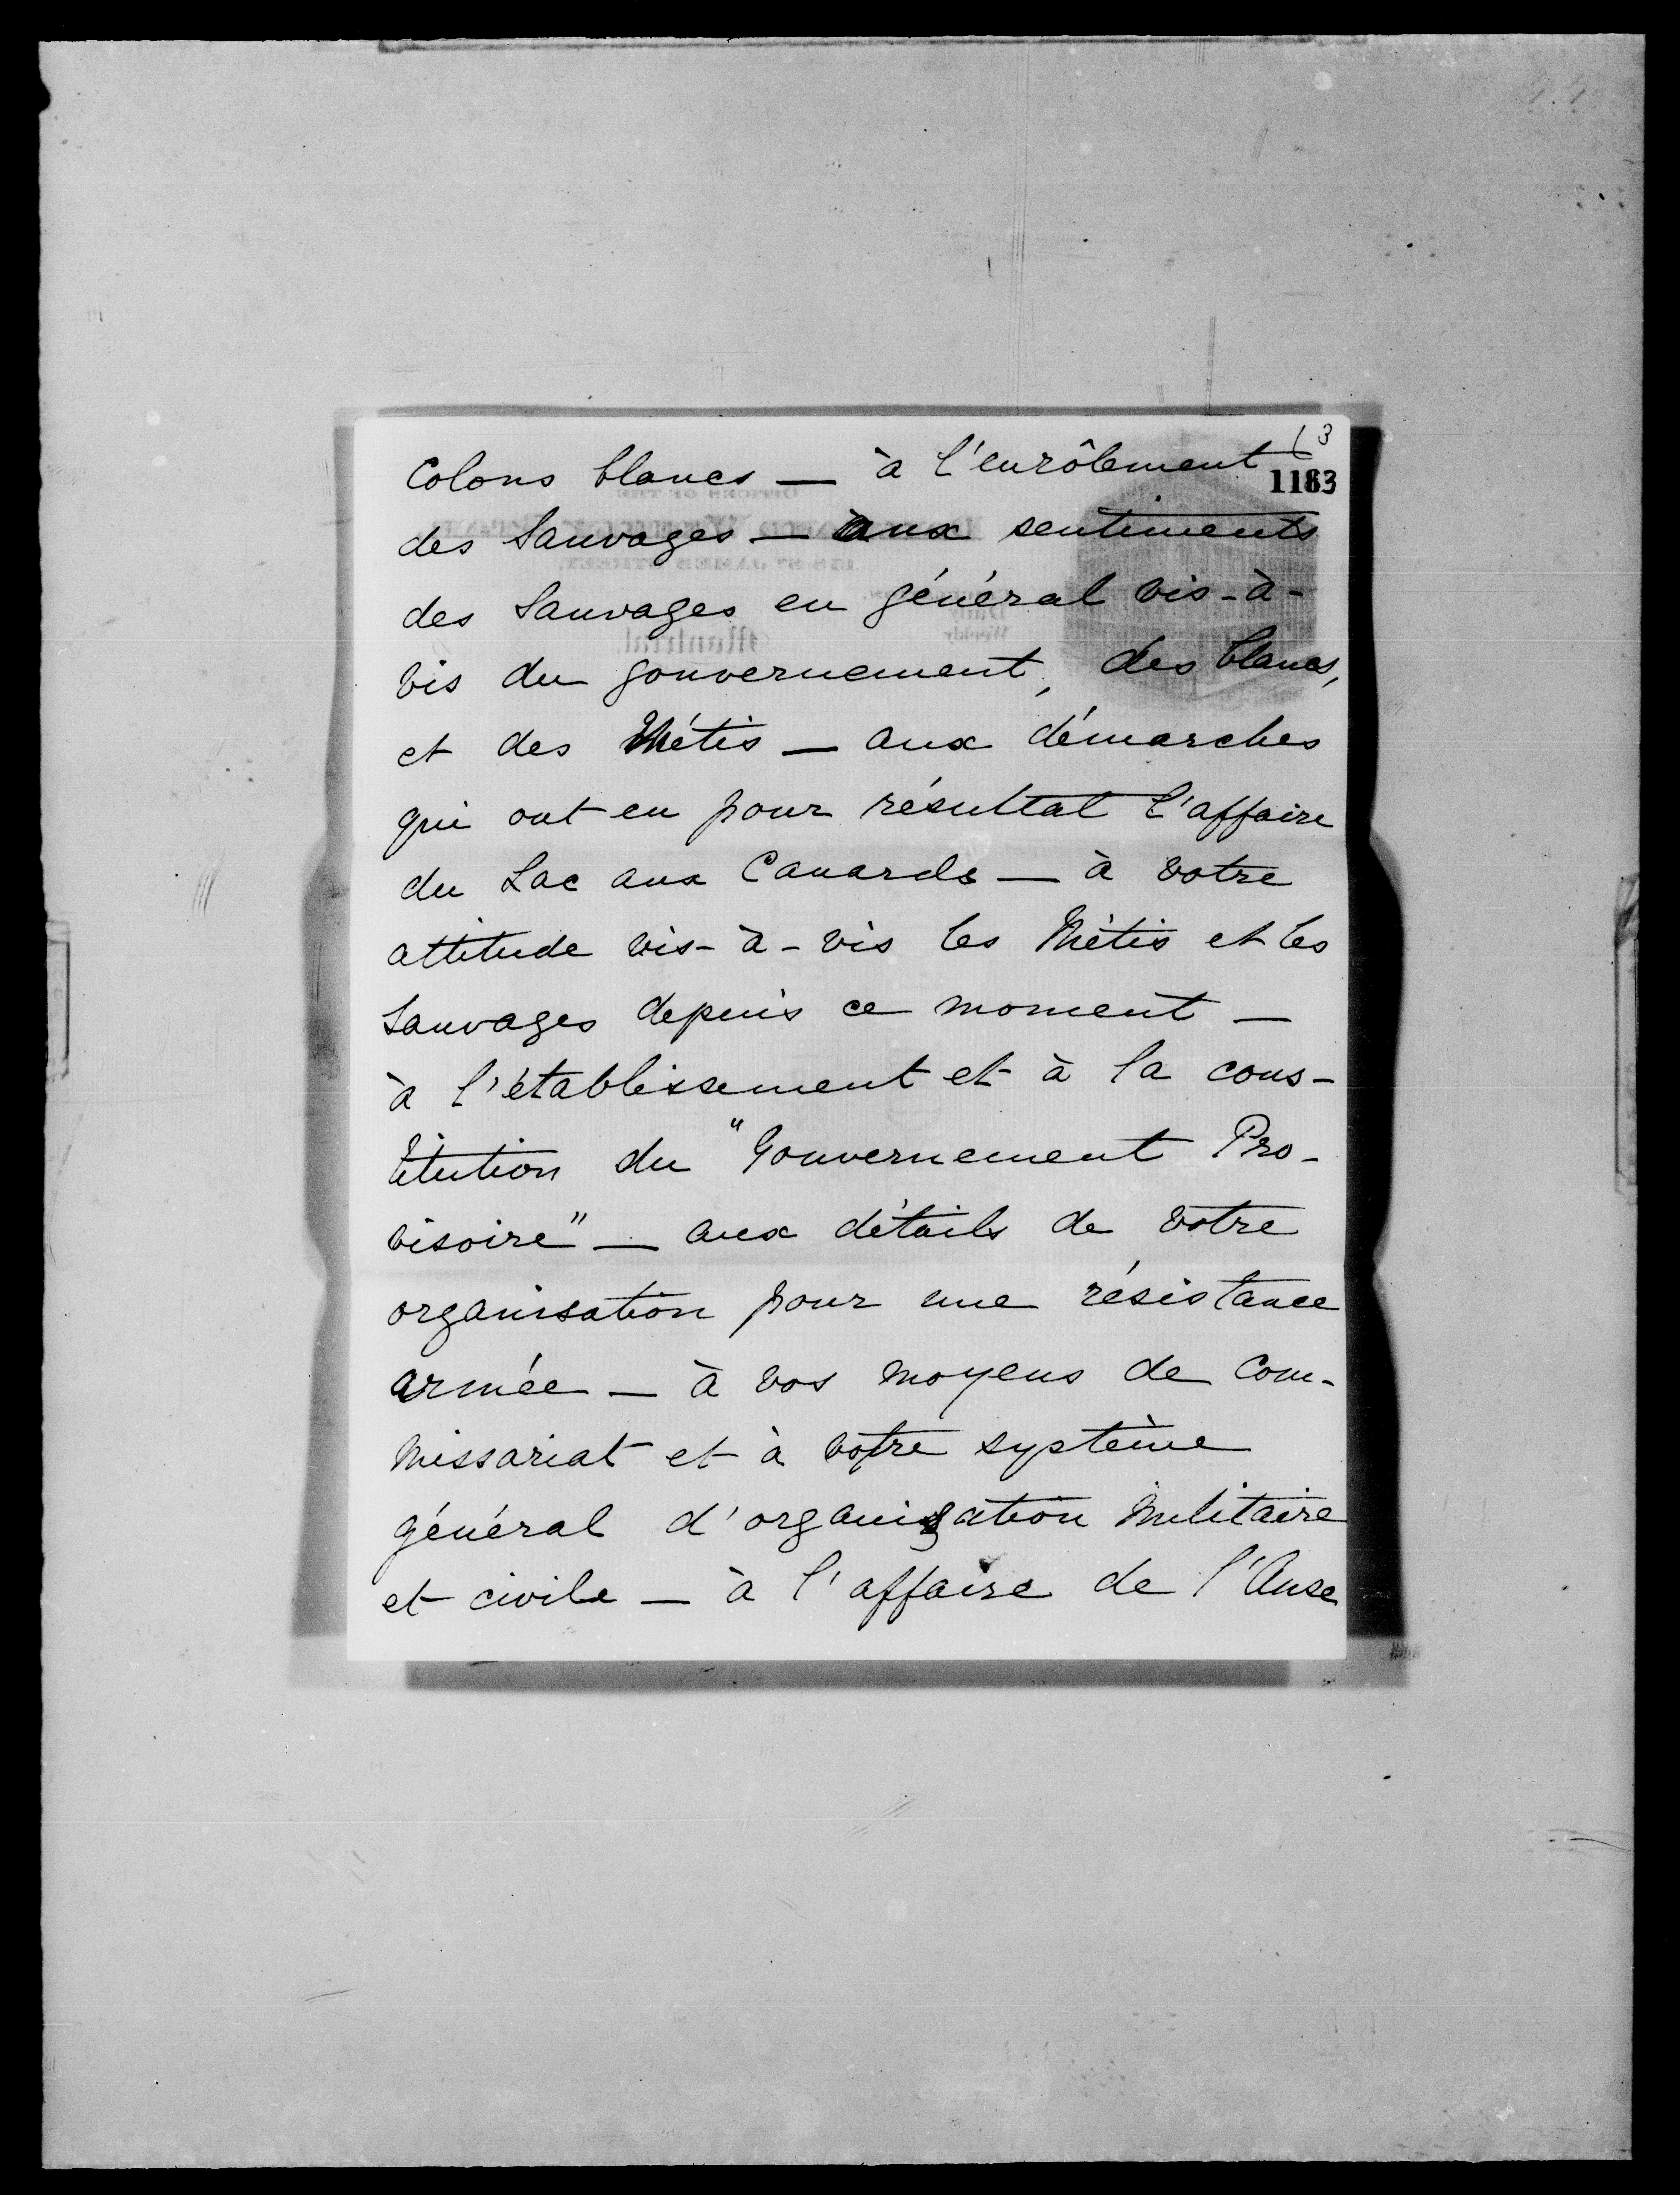 (3
1183
Colons blancs — à l'enrôlement
des Sauvages — aux sentiments
des Sauvages en général vis-à-
vis du gouvernement, des blancs,
et des Métis — aux démarches
qui ont eu pour résultat l'affaire
du Lac aux Canards — à votre
attitude vis-à-vis les Métis et les
Sauvages depuis ce moment —
à l'établissement et à la cons-
titution du "Gouvernement Pro-
visoire" — aux détails de votre
organisation pour une résistance
armée — à vos moyens de com-
missariat et à votre système
général d'organisation militaire
et civile — à l'affaire de l'Anse